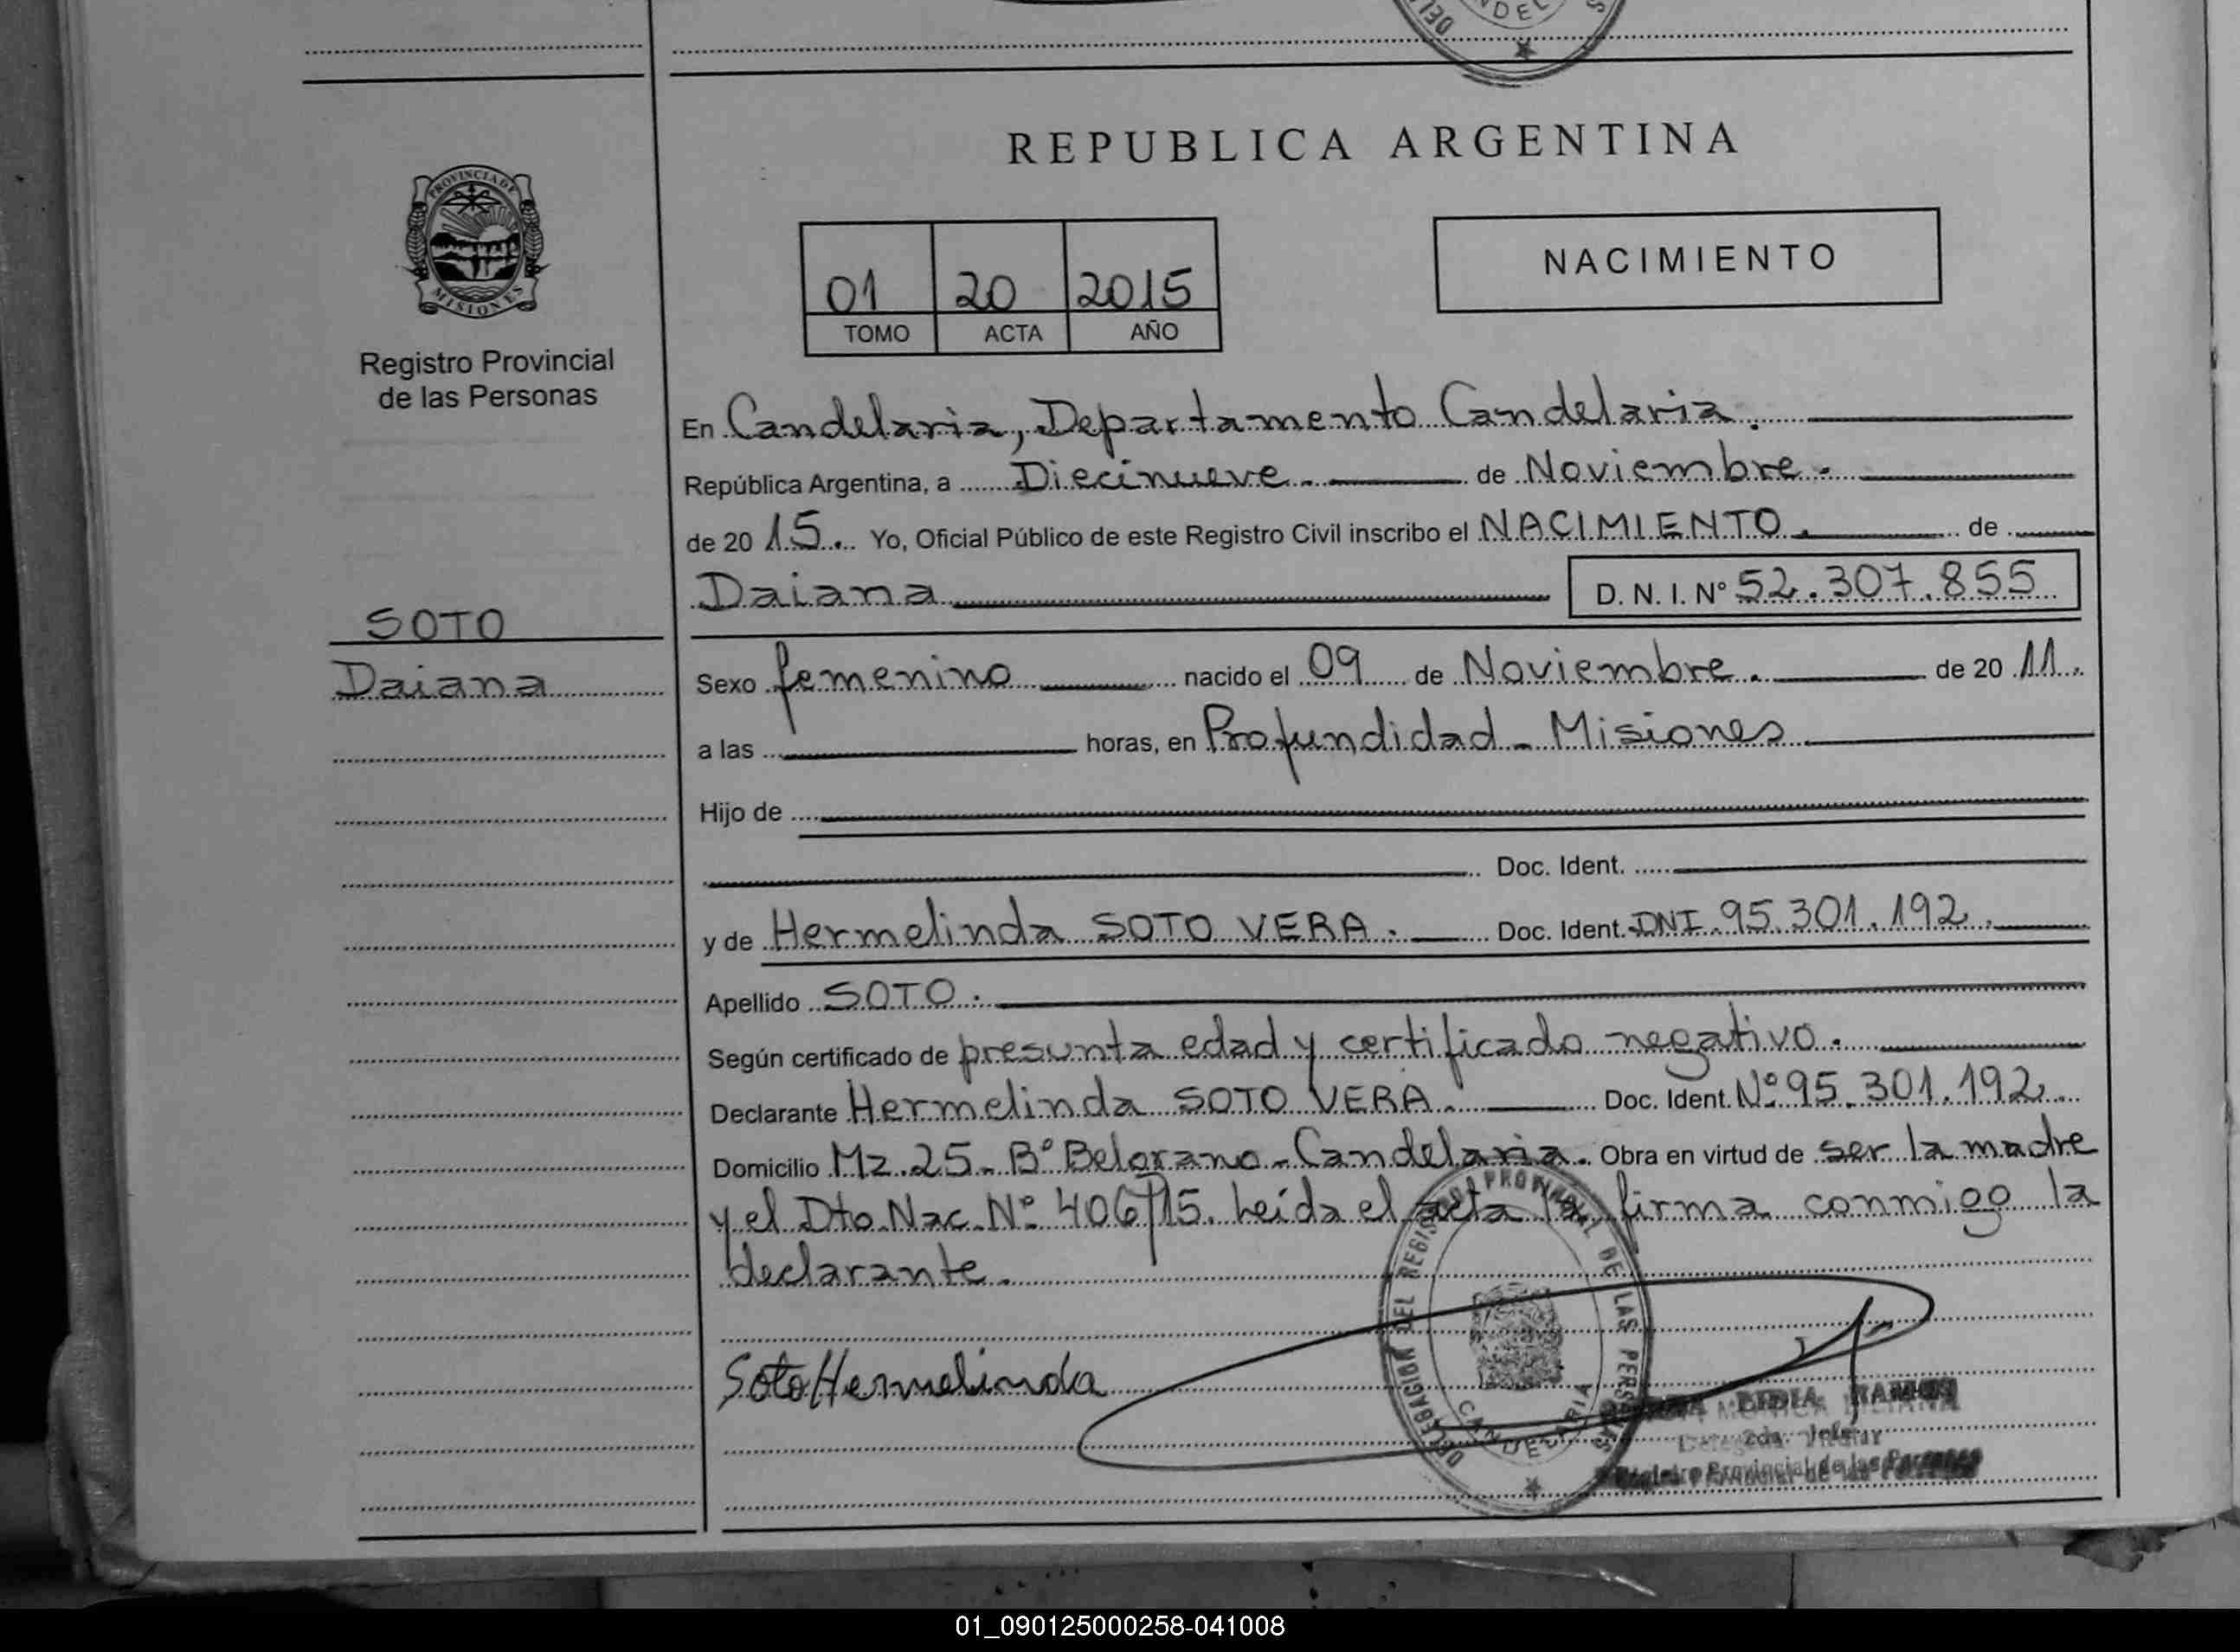 NDEL
DEL
S
REPUBLICA ARGENTINA
PROVINCIA DE
MISIONES
Registro Provincial
de las Personas
NACIMIENTO
01 20 2015
TOMO ACTA AÑO
En Candelaria, Departamento Candelaria.
República Argentina, a Diecinueve. de Noviembre.
de 20 15. Yo, Oficial Público de este Registro Civil inscribo el NACIMIENTO. de
Daiana D. N. I. N° 52.307.855
SOTO
Daiana
Sexo femenino nacido el 09 de Noviembre. de 20 11.
a las horas, en Profundidad - Misiones
Hijo de
Doc. Ident.
y de Hermelinda SOTO VERA. Doc. Ident. DNI. 95.301.192.
Apellido SOTO.
Según certificado de presunta edad y certificado negativo.
Declarante Hermelinda SOTO VERA. Doc. Ident. N° 95.301.192.
Domicilio Mz. 25. B° Belgrano - Candelaria. Obra en virtud de ser la madre
y el Dto. Nac. N° 406/15. Leída el acta la firma conmigo la
declarante.
Soto Hermelinda
DELEGACION DEL REGISTRO PROVINCIAL DE LAS PERSONAS
CANDELARIA
DIDIA RAMON
MONICA LILIANA
2da. Jefa
Registro Provincial de las Personas
01_090125000258-041008